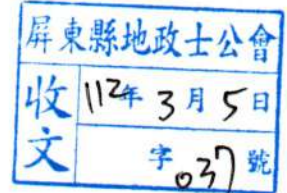 屏東縣地政士公會
收文
112年3月5日
字037號